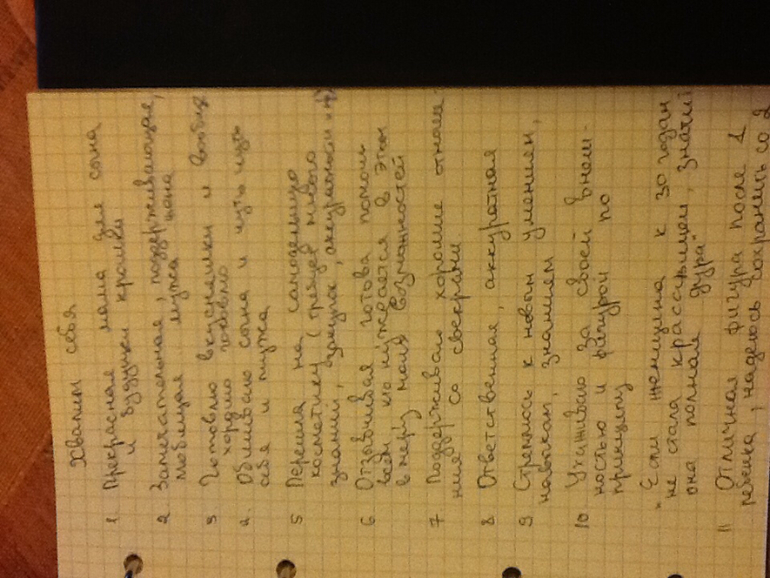 Хвалим себя
1. Прекрасная мама для сына
и будущей крошки
2 Замечательная, поддерживающая,
любящая мужа жена
3 Готовлю вкусняшки и вообще
хорошо готовлю
4. Обшиваю сына и чуть чуть
себя и мужа
5 Перешла на самодельную
косметику (требует много
знаний, закупок, аккуратности и т.д)
6 Отзывчивая готова помочь
всем кто нуждается в этом
в меру моих возможностей
7 Поддерживаю хорошие отноше-
ния со свекрами
8 Ответственная, аккуратная
9 Стремлюсь к новым умениям,
навыкам, знаниям
10 Ухаживаю за своей внеш-
ностью и фигурой по
принципу
"Если женщина к 30 годам
не стала красавицей, значит
она полная дура"
11 Отличная фигура после 1
ребенка, надеюсь сохранить со 2